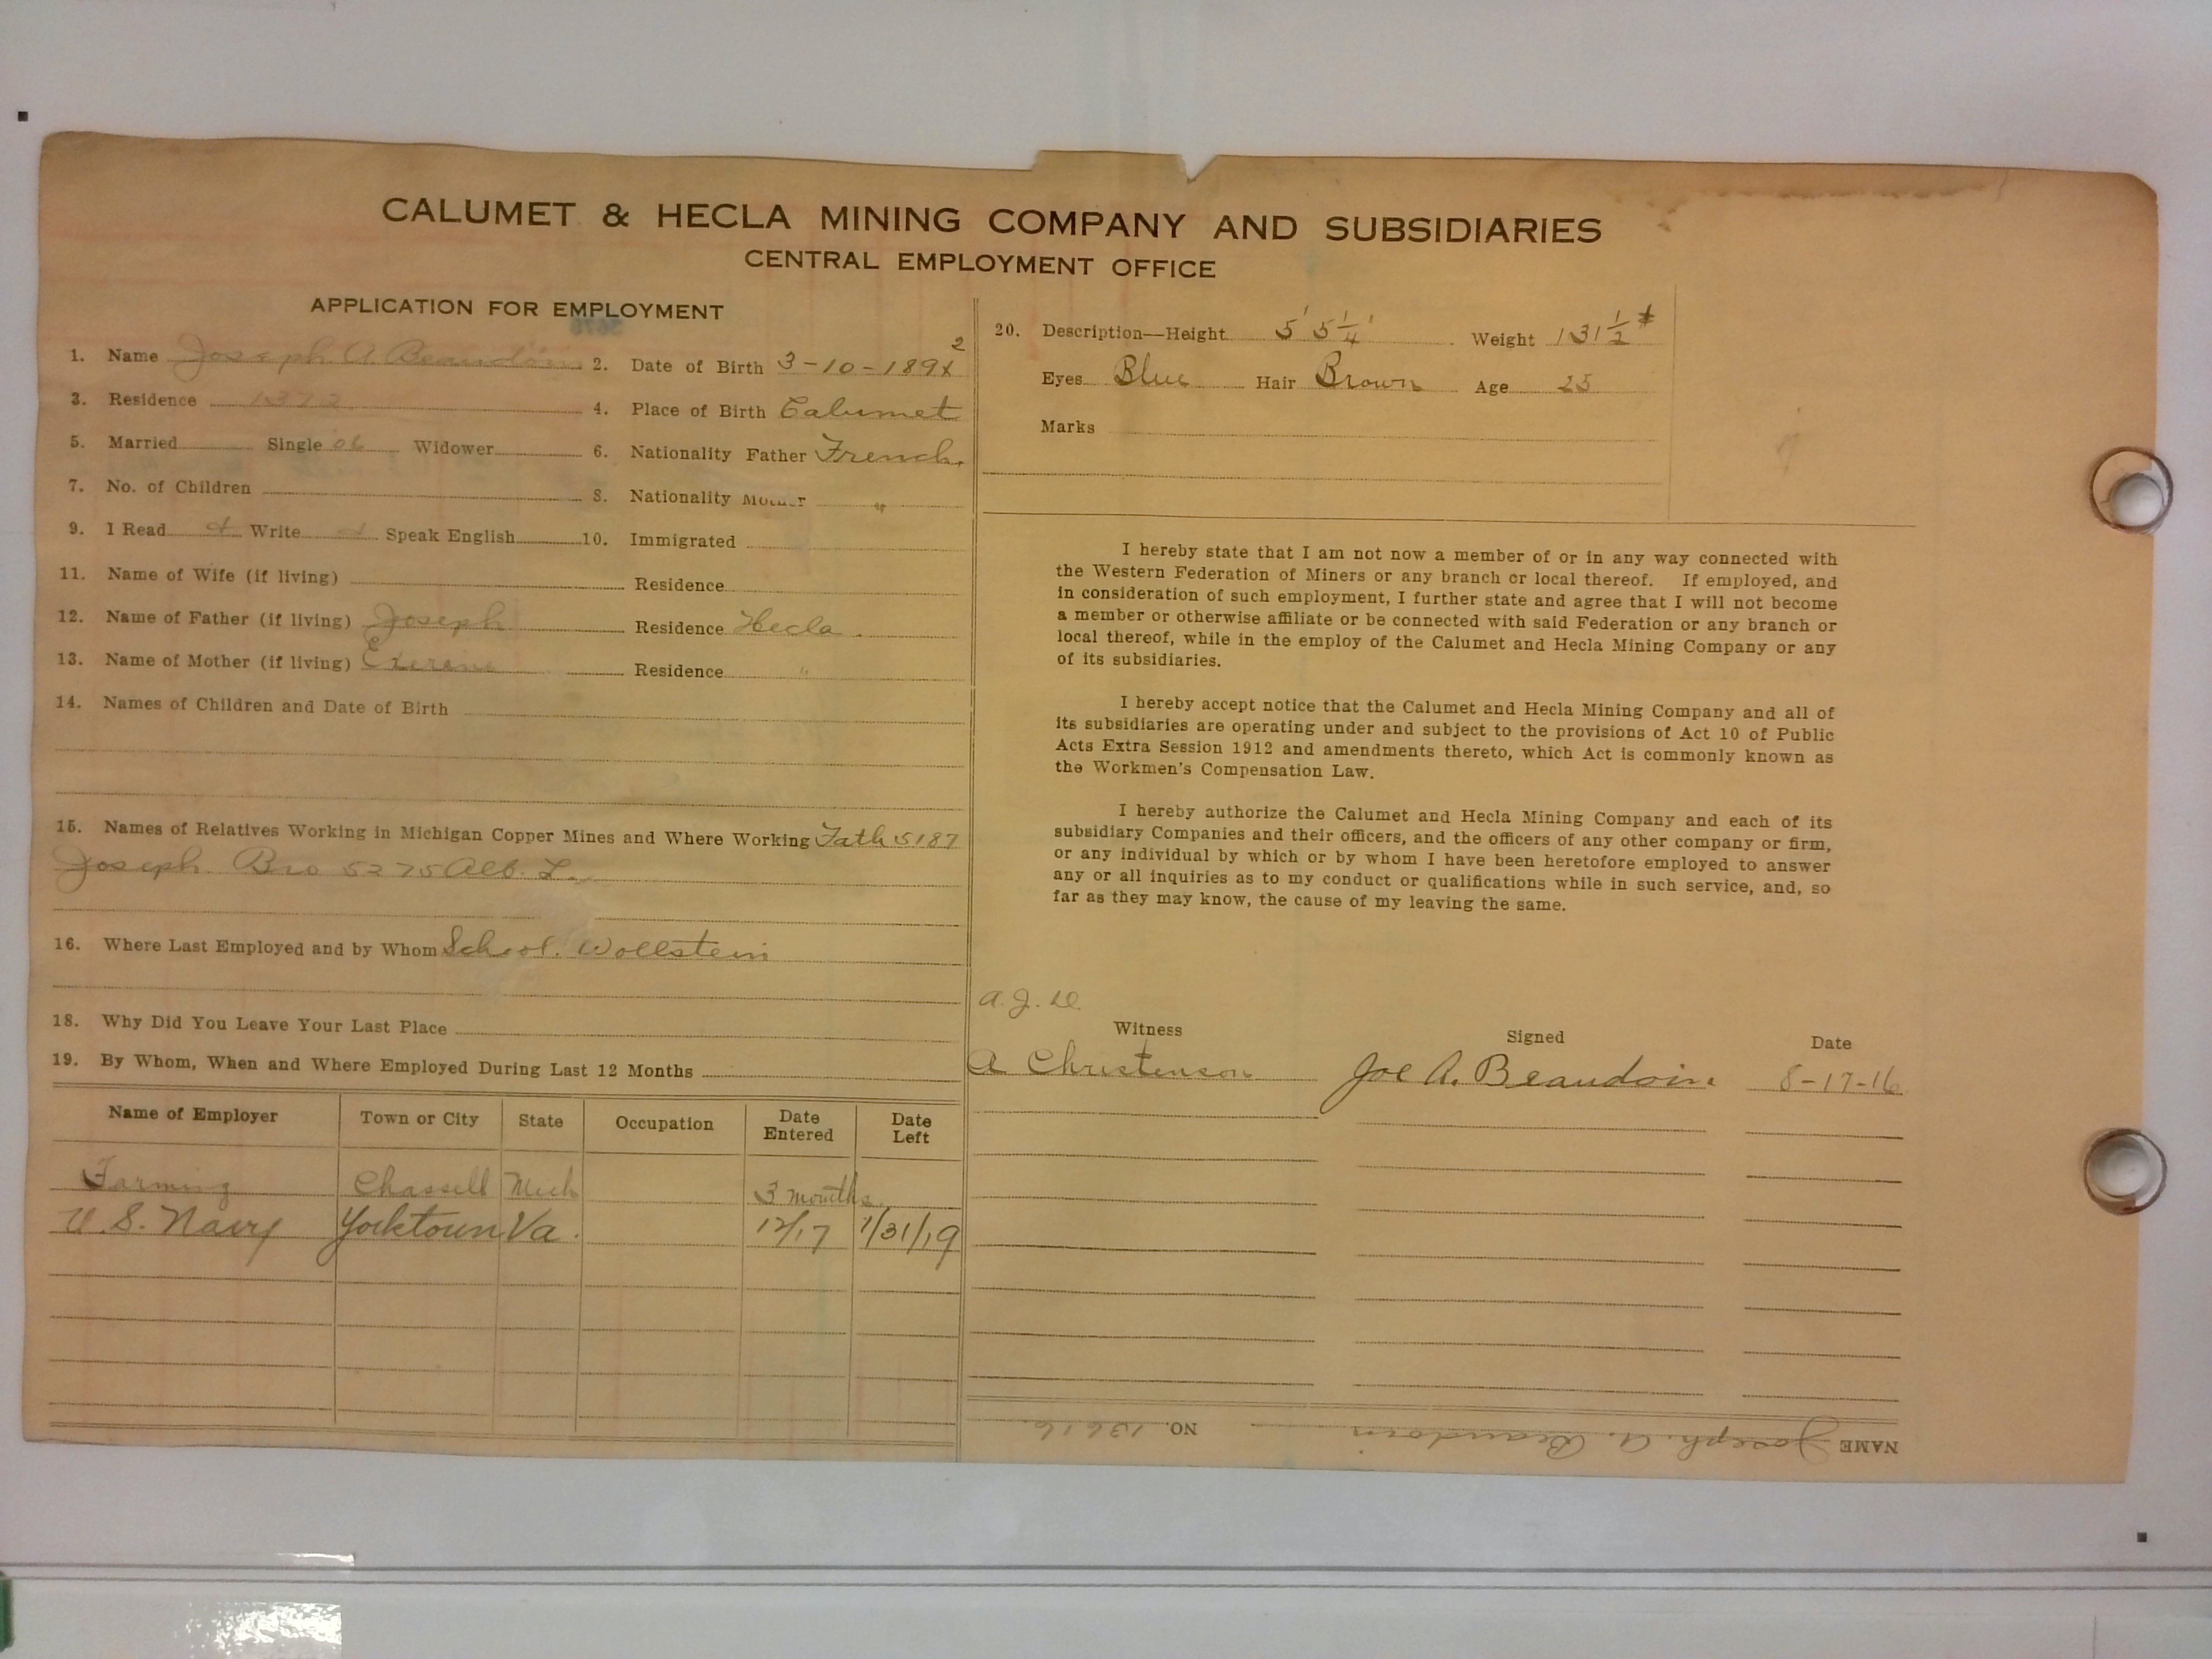 CALUMET & HECLA MINING COMPANY AND SUBSIDIARIES
CENTRAL EMPLOYMENT OFFICE
APPLICATION FOR EMPLOYMENT
1. Name Joseph A. Beaudoin 2. Date of Birth 3-10-1891 2
3. Residence 1372 4. Place of Birth Calumet
5. Married Single Widower 6. Nationality Father French
7. No. of Children 8. Nationality Mother "
9. I Read Write Speak English 10. Immigrated
11. Name of Wife (if living) Residence
12. Name of Father (if living) Joseph Residence Hecla
13. Name of Mother (if living) Residence "
14. Names of Children and Date of Birth
15. Names of Relatives Working in Michigan Copper Mines and Where Working Fath 5187
Joseph. Bro 5275 Alb. L.
16. Where Last Employed and by Whom School. Wollstein
18. Why Did You Leave Your Last Place
19. By Whom, When and Where Employed During Last 12 Months
Name of Employer Town or City State Occupation Date Entered Date Left
Farming Chassell Mich 3 months
U.S. Navy Yorktown Va. 12/17 1/31/19
20. Description—Height 5' 5 1/4' Weight 131 1/2 #
Eyes Blue Hair Brown Age 25
Marks
I hereby state that I am not now a member of or in any way connected with
the Western Federation of Miners or any branch or local thereof. If employed, and
in consideration of such employment, I further state and agree that I will not become
a member or otherwise affiliate or be connected with said Federation or any branch or
local thereof, while in the employ of the Calumet and Hecla Mining Company or any
of its subsidiaries.
I hereby accept notice that the Calumet and Hecla Mining Company and all of
its subsidiaries are operating under and subject to the provisions of Act 10 of Public
Acts Extra Session 1912 and amendments thereto, which Act is commonly known as
the Workmen's Compensation Law.
I hereby authorize the Calumet and Hecla Mining Company and each of its
subsidiary Companies and their officers, and the officers of any other company or firm,
or any individual by which or by whom I have been heretofore employed to answer
any or all inquiries as to my conduct or qualifications while in such service, and, so
far as they may know, the cause of my leaving the same.
Witness Signed Date
A Christenson Joe A. Beaudoin. 8-17-16
NAME Joseph. A. Beaudoin NO. 13616